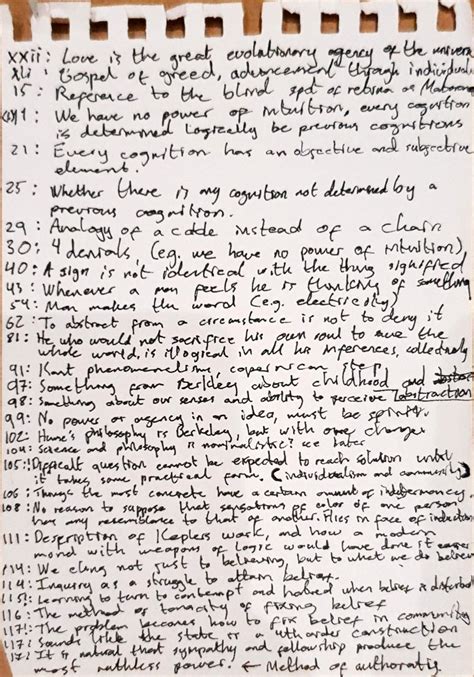 xxii: Love is the great evolutionary agency of the univers
xli: Gospel of greed, advancement through individual
15: Reference to the blind spot of retina or
1: We have no power of intuition, every cognition
is determined logically be previous cognitions
21: Every cognition has an objective and subjective
element.
25: Whether there is any cognition not determined by a
previous cognition.
29: Analogy of a cable instead of a chain
30: 4 denials, (e.g. we have no power of intuition)
40: A sign is not identical with the thing signified
43: Whenever a man feels he is thinking of something
54: Man makes the word (e.g. electricity)
62: To abstract from a circumstance is not to deny it
81: He who would not sacrifice his own soul to save the
whole world, is illogical in all his inferences, collectively
91: Kant phenomenalism, copernican step
97: Something from Berkley about childhood and
98: Something about our senses and ability to perceive abstraction
99: No power or agency in an idea, must be spirit.
102: Hume's philosophy is Berkeley, but with one change
104: Science and philosophy is nominalistic? see later
105: !Difficult question cannot be expected to reach solution until
it takes some practical form. (individualism and community)
106: Things the most concrete have a certain amount of
108: No reason to suppose that sensations of color of one person
has any resemblance to that of another. Flies in face of induction
111: Description of Keplers work, and how a modern
mond with weapons of logic would have done it easier
114: We cling not just to believing, but to what we do believe
114: Inquiry as a struggle to attain belief.
115!: Learning to turn to contempt and hatred when belief is disturbed
116: The method of tenacity of fixing belief
117!: The problem becomes how to fix belief in community
117: Sounds like the state is a 4th order construction
117: It is natural that sympathy and fellowship produce the
most ruthless power. ← Method of authority